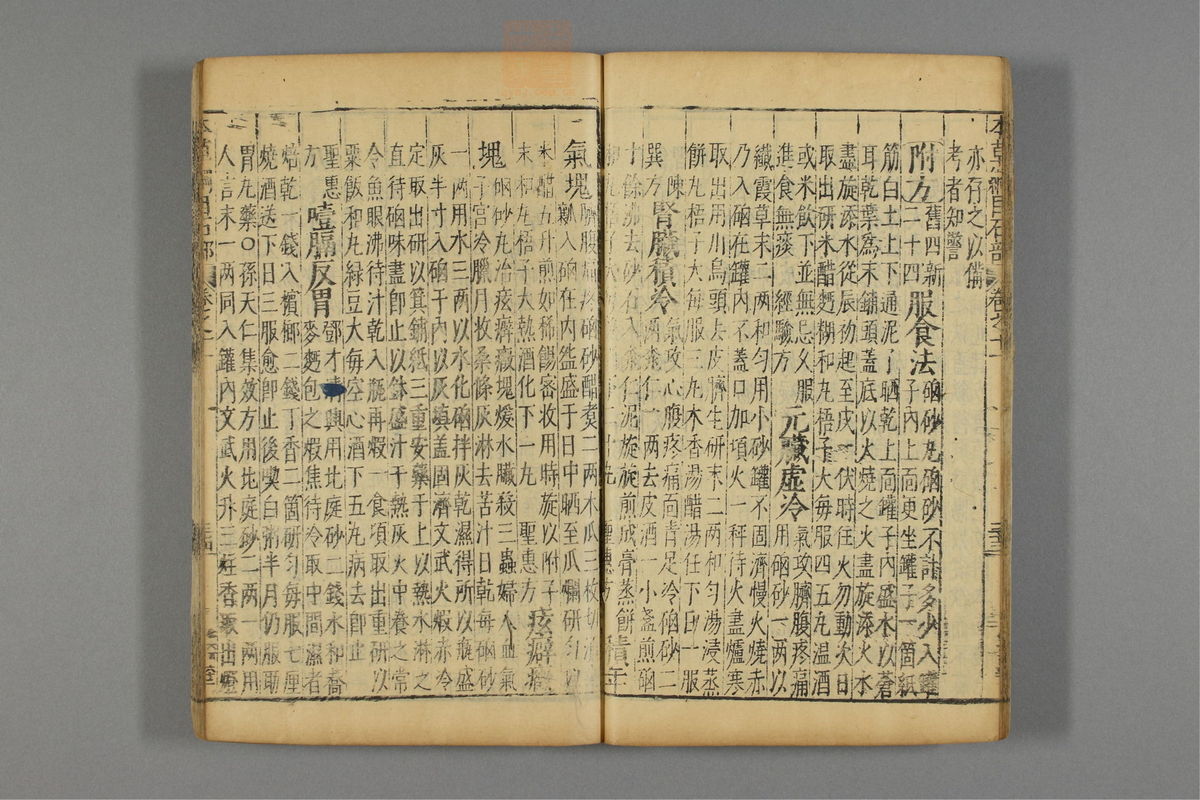 亦存之以備
考者知警
附方舊四新二十四服食法硇砂丸硇砂不計多少入罐子內上面更坐罐子一箇紙
筋白土上下通泥了晒乾上面罐子內盛水以蒼
耳乾葉為末鋪頭蓋底以火燒之火盡旋添火水
盡旋添水從辰初起至戌一伏時住火勿動次日
取出研米醋麪糊和丸梧子大每服四五丸溫酒
或米飲下並無忌久服
進食無痰 經驗方 元臟虛冷氣攻臍腹疼痛用硇砂一兩以
纖霞草末二兩和勻用小砂罐不固濟慢火燒赤
乃入硇在罐內不蓋口加頂火一秤待火盡爐寒
取出用川烏頭去皮臍生研末二兩和勻湯浸蒸
餅丸梧子大每服三丸木香湯醋湯任下日一服
陳巽方 腎臟積冷氣攻心腹疼痛面青足冷硇砂二
兩桃仁一兩去皮酒一小盞煮硇
十餘沸去砂石入桃仁泥旋旋煎成膏蒸餅積年
氣塊臍腹痛疼硇砂醋煮二兩木瓜三枚切須
瓤入硇在內盌盛于日中晒至瓜爛研勻以
米醋五升煎如稀餳密收用時旋以附子
末和丸梧子大熱酒化下一丸 聖惠方 痃癖癥
塊硇砂丸治痃癖癥塊煖水臟殺三蟲婦人血氣
子宮冷臘月收桑條灰淋去苦汁日乾每硇砂
一兩用水三兩以水化硇拌灰乾濕得所以瓶盛
灰半寸入硇于內以灰填蓋固濟文武火煅赤冷
定取出研以箕鋪紙三重安藥于上以熱水淋之
直待硇味盡即止以鉢盛汁于熱灰火中養之常
令魚眼沸待汁乾入瓶再煅一食頃取出重研以
粟飯和丸綠豆大每空心酒下五丸病去即止
聖惠方 噎膈反胃鄧才清興用北庭砂二錢水和蕎
麥麪包之煅焦待冷取中間濕者
焙乾一錢入檳榔二錢丁香二箇研勻每服七厘
燒酒送下日三服愈即止後喫白粥半月仍服助
胃丸藥○孫天仁集效方用北庭砂二兩一兩用
人言末一兩同入罐內文武火升三炷香取出燈